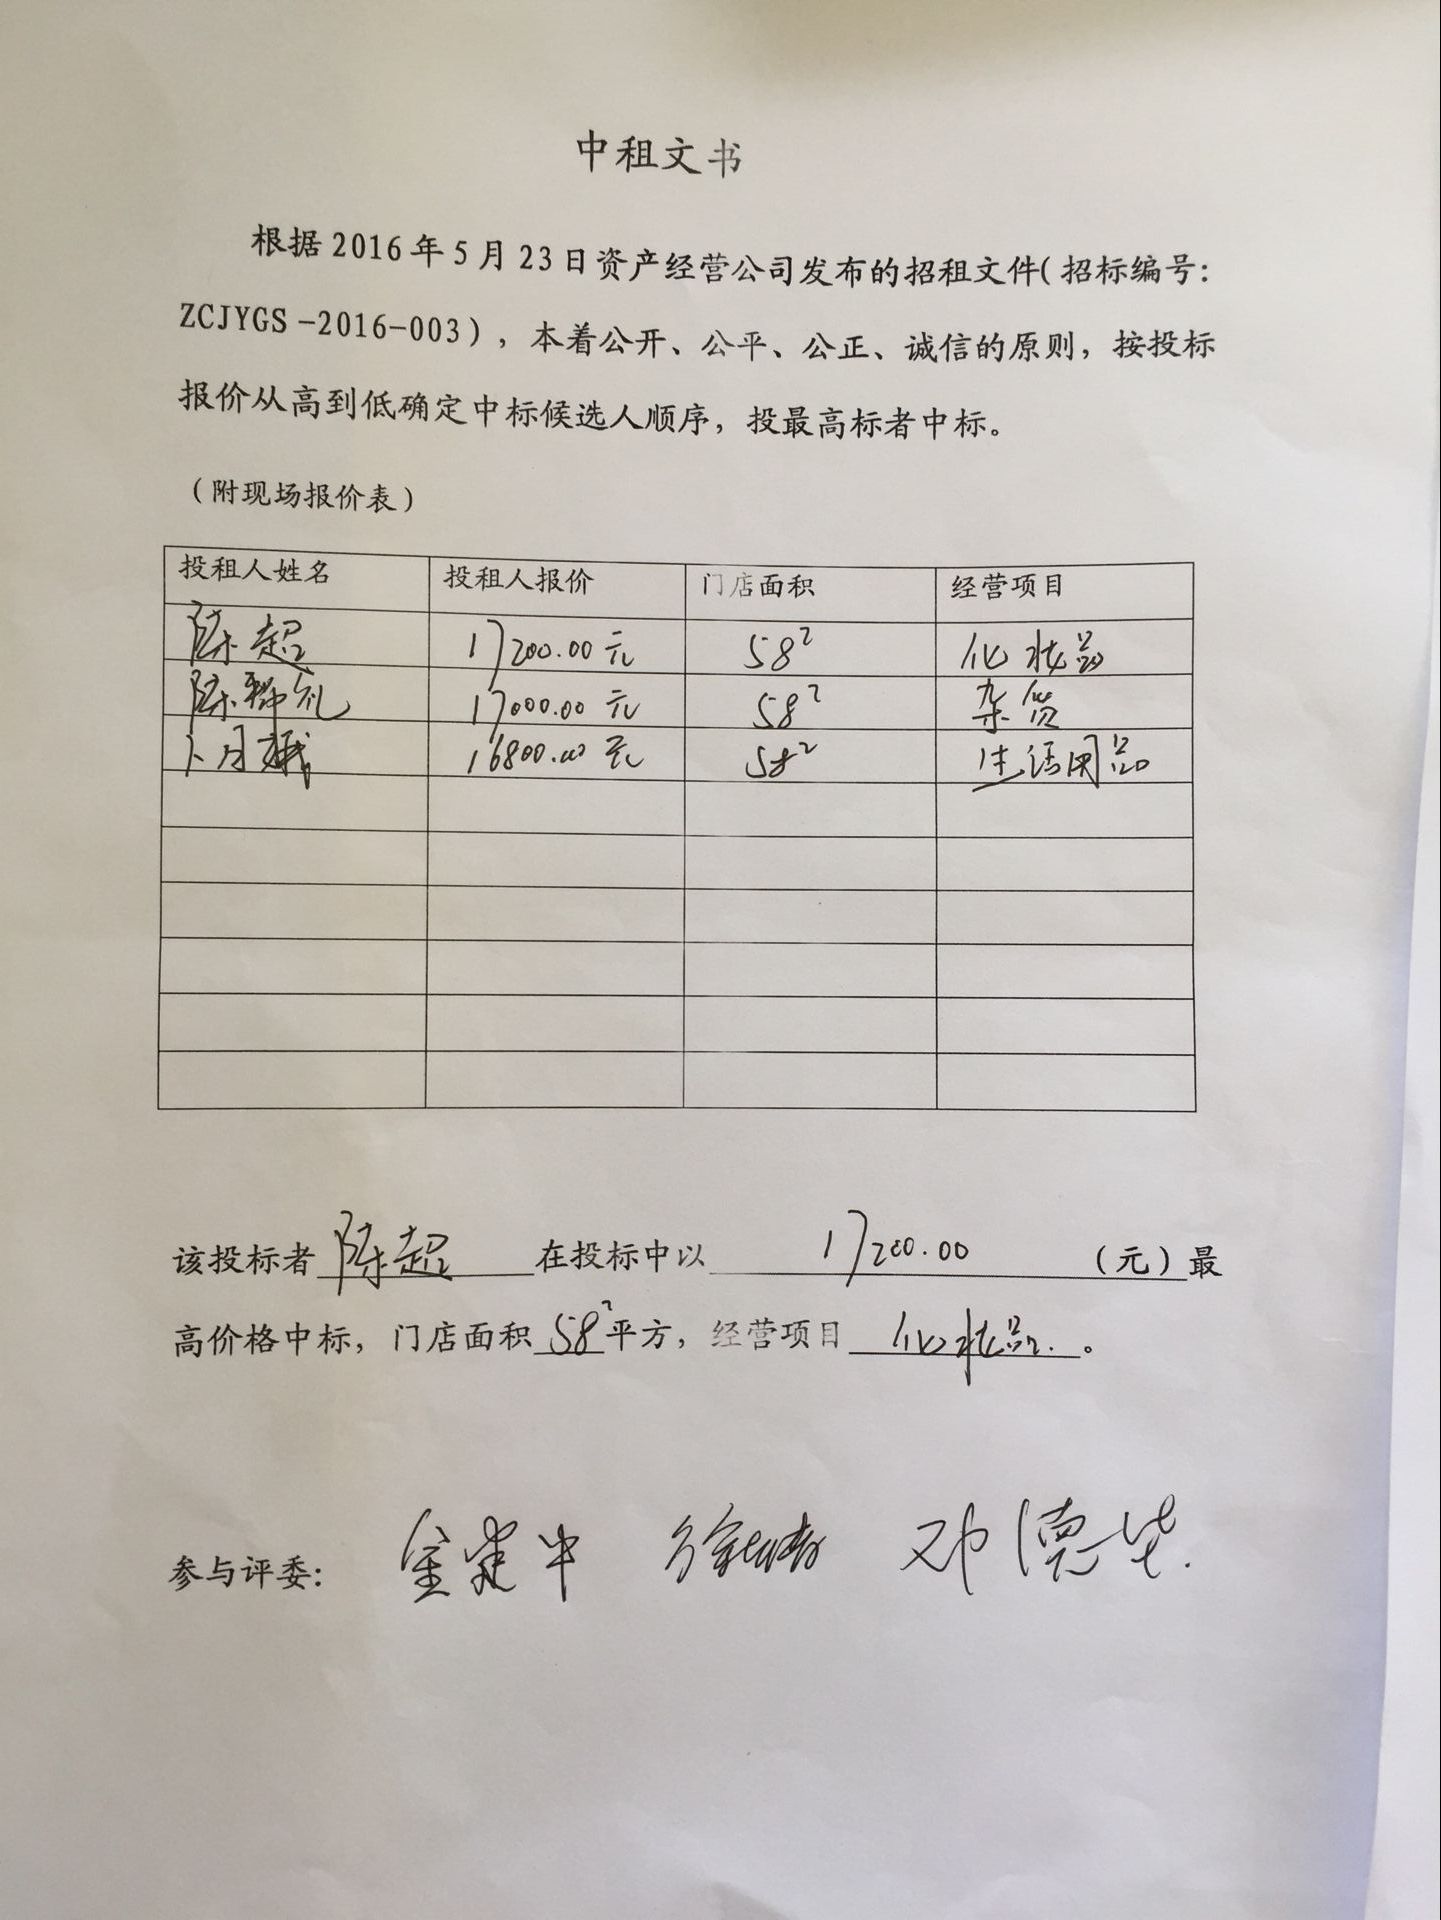 中租文书
根据2016年5月23日资产经营公司发布的招租文件(招标编号:
ZCJYGS-2016-003),本着公开、公平、公正、诚信的原则,按投标
报价从高到低确定中标候选人顺序,投最高标者中标。
(附现场报价表)
投租人姓名 投租人报价 门店面积 经营项目
陈超 17200.00元 58² 化妆品
陈 17000.00元 58² 杂货
卜月娥 16800.00元 58² 生活用品
该投标者陈超在投标中以17200.00(元)最
高价格中标,门店面积58²平方,经营项目化妆品.。
参与评委: 金建中 徐 邓德华.